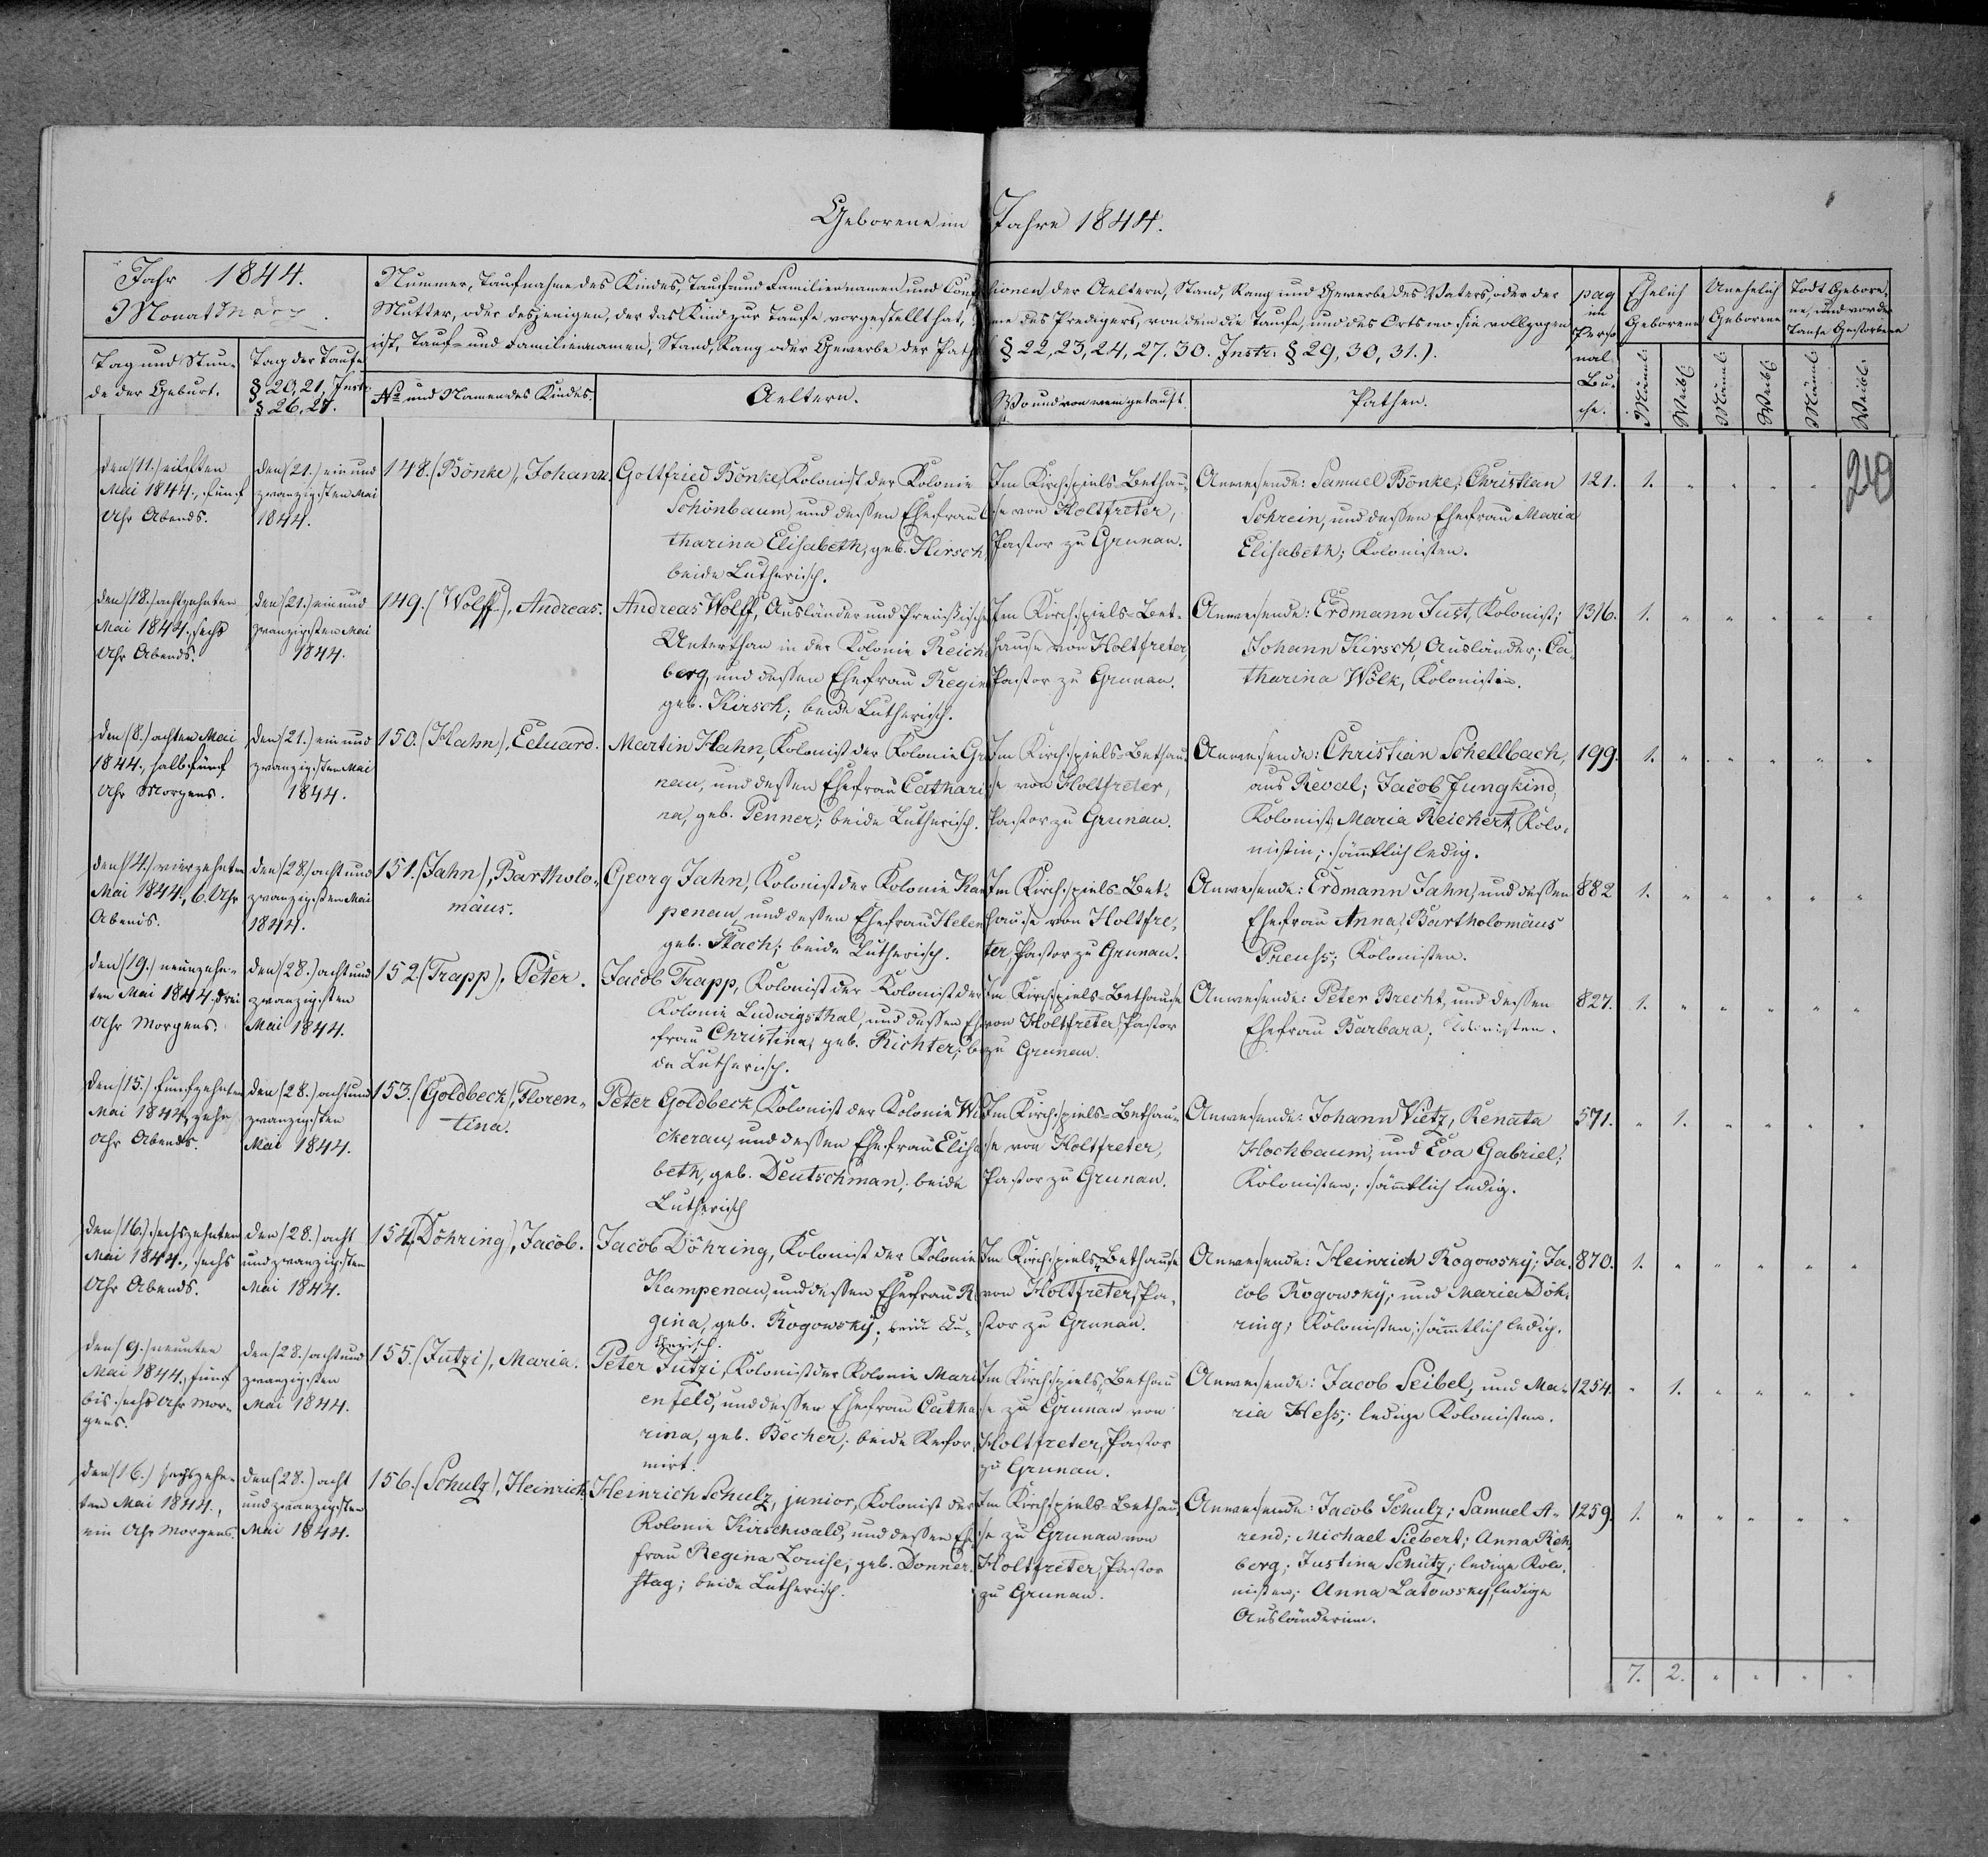 Geborene im Jahre 1844.
Jahr 1844.
Monat März.
Tag und Stun-
de der Geburt.
Tag der Taufe
§ 20, 21, Instr.
§ 26, 27.
Nummer, Taufnahme des Kindes, Tauf- und Familiennamen und Conf
Mutter, oder desjenigen, der das Kind zur Taufe vorgestellt hat,
ist, Tauf- und Familiennamen, Stand, Rang oder Gewerbe der Path
No und Namen des Kindes.
Aeltern.
sionen der Aeltern, Stand, Rang und Gewerbe des Vaters, oder der
me des Predigers, von dem die Taufe, und des Orts wo sie vollzogen
(§ 22, 23, 24, 27. 30. Instr. § 29, 30, 31.).
Wo und von wem getauft.
Pathen.
pag
im
Perso
nal
Bu-
che.
Ehelich
Geborene
Unehelich
Geborene
Todt Gebore-
ne, und vor der
Taufe Gestorbene
Männl.
Weibl.
Männl.
Weibl.
Männl.
Weibl.
den (11.) eilften
Mai 1844., fünf
Uhr Abends.
den (21.) ein und
zwanzigsten Mai
1844.
148. (Bönke), Johann.
Gottfried Bönke, Kolonist der Kolonie
Schönbaum, und dessen Ehefrau C
tharina Elisabeth, geb. Hirsch,
beide Lutherisch.
Im Kirchspiels-Bethau-
se von Holtfreter,
Pastor zu Grunau.
Anwesende: Samuel Bönke; Christian
Schrein, und dessen Ehefrau Maria
Elisabeth; Kolonisten.
121. 1. " " " " 
den (18.) achtzehnten
Mai 1844., sechs
Uhr Abends.
den (21.) ein und
zwanzigsten Mai
1844.
149. (Wolff), Andreas.
Andreas Wolff, Ausländer und Preußische
Unterthan in der Kolonie Reich
berg, und dessen Ehefrau Regin
geb. Kirsch; beide Lutherisch.
Im Kirchspiels-Bet-
hause von Holtfreter,
Pastor zu Grunau.
Anwesende: Erdmann Just, Kolonist;
Johann Kirsch, Ausländer; Ca-
tharina Wölk, Kolonistin.
1316. 1. " " " " "
den (8.) achten Mai
1844., halb fünf
Uhr Morgens.
den (21.) ein und
zwanzigsten Mai
1844.
150. (Hahn), Eduard.
Martin Hahn, Kolonist der Kolonie Gr
nau, und dessen Ehefrau Cathari
na, geb. Penner; beide Lutherisch.
Im Kirchspiels-Bethau-
se von Holtfreter,
Pastor zu Grunau.
Anwesende: Christian Schellbach,
aus Reval; Jacob Jungkind,
Kolonist; Maria Reichert, Kolo-
nistin; sämtlich ledig.
199. 1. " " " " "
den (14.) vierzehnten
Mai 1844., 6. Uhr
Abends.
den (28.) acht und
zwanzigsten Mai
1844.
151. (Jahn), Bartholo-
mäus.
Georg Jahn, Kolonist der Kolonie Kam
penau, und dessen Ehefrau Helen
geb. Stach; beide Lutherisch.
Im Kirchspiels-Bet-
hause von Holtfre-
ter, Pastor zu Grunau.
Anwesende: Erdmann Jahn, und dessen
Ehefrau Anna; Bartholomäus
Preuss; Kolonisten.
882 1. " " " " "
den (19.) neunzehn-
ten Mai 1844. drei
Uhr Morgens.
den (28.) acht und
zwanzigsten
Mai 1844.
152. (Trapp), Peter.
Jacob Trapp, Kolonist der Kolonist der
Kolonie Ludwigsthal, und dessen Ehe
frau Christina, geb. Richter; bei
de Lutherisch.
Im Kirchspiels-Bethause
von Holtfreter, Pastor
zu Grunau.
Anwesende: Peter Brecht, und dessen
Ehefrau Barbara; Kolonisten.
827. 1. " " " " "
den (15.) fünfzehnten
Mai 1844, zehn
Uhr Abends.
den (28.) acht und
zwanzigsten
Mai 1844.
153. (Goldbeck), Floren-
tina.
Peter Goldbeck, Kolonist der Kolonie Wi
ckerau, und dessen Ehefrau Elisa
beth, geb. Deutschman; beide
Lutherisch
Im Kirchspiels-Bethau-
se von Holtfreter,
Pastor zu Grunau.
Anwesende: Johann Vietz, Renata
Hochbaum, und Eva Gabriel;
Kolonisten; sämtlich ledig.
571. " 1. " " " "
den (16.) sechszehnten
Mai 1844., sechs
Uhr Abends.
den (28.) acht
und zwanzigsten
Mai 1844.
154. (Döhring), Jacob.
Jacob Döhring, Kolonist der Kolonie
Kampenau, und dessen Ehefrau R
gina, geb. Rogowsky; beide Lu-
therisch.
Im Kirchspiels-Bethause
von Holtfreter, Pa-
stor zu Grunau.
Anwesende: Heinrich Rogowsky; Ja-
cob Rogowsky; und Maria Döh-
ring; Kolonisten; sämtlich ledig.
870. 1. " " " " "
den (9.) neunten
Mai 1844., fünf
bis sechs Uhr Mor-
gens.
den (28.) acht und
zwanzigsten
Mai 1844.
155. (Jutzi), Maria.
Peter Jutzi, Kolonist der Kolonie Mari
enfeld, und dessen Ehefrau Catha
rina, geb. Becher; beide Refor-
mirt.
Im Kirchspiels-Bethau
se zu Grunau von
Holtfreter, Pastor
zu Grunau.
Anwesende: Jacob Seibel, und Ma-
ria Hess; ledige Kolonisten.
1254. " 1. " " " "
den (16.) sechszehn-
ten Mai 1844.,
ein Uhr Morgens.
den (28.) acht
und zwanzigsten
Mai 1844.
156. (Schulz), Heinrich.
Heinrich Schulz, junior, Kolonist der
Kolonie Kirschwald, und dessen Ehe
frau Regina Louise, geb. Donner-
stag; beide Lutherisch.
Im Kirchspiels-Bethau-
se zu Grunau von
Holtfreter, Pastor
zu Grunau.
Anwesende: Jacob Schulz; Samuel A-
rend; Michael Siebert; Anna Reh-
berg; Justina Schütz; ledige Kolo-
nisten; Anna Latowsky, ledige
Ausländerinn.
1259. 1. " " " " "
7. 2. " " " "